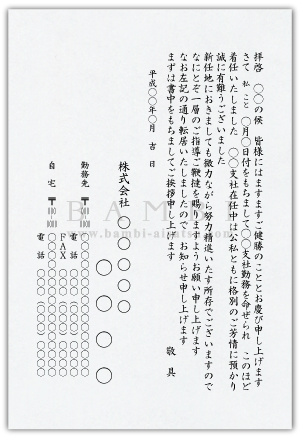 拝啓　〇〇の候　皆様にはますますご健勝のこととお慶び申し上げます
さて　私こと　〇月〇日付をもちまして〇〇支社勤務を命ぜられ　このほど
着任いたしました　〇〇支社在任中は公私ともに格別のご芳情に預かり
誠に有難うございました
新任地におきましても微力ながら努力精進いたす所存でございますので
なにとぞ一層のご指導ご鞭撻を賜りますようお願い申し上げます
なお左記の通り転居いたしましたので　お知らせ申し上げます
まずは書中をもちましてご挨拶申し上げます
敬具
平成〇〇年〇月　吉日
株式会社　〇〇〇〇
〇〇〇〇
勤務先　〒
〇〇〇〇〇〇〇〇〇〇〇〇
電話　〇〇〇(〇〇〇)〇〇〇〇
FAX　〇〇〇(〇〇〇)〇〇〇〇
自宅　〒
〇〇〇〇〇〇〇〇〇〇〇〇
電話　〇〇〇(〇〇〇)〇〇〇〇
BAMBI